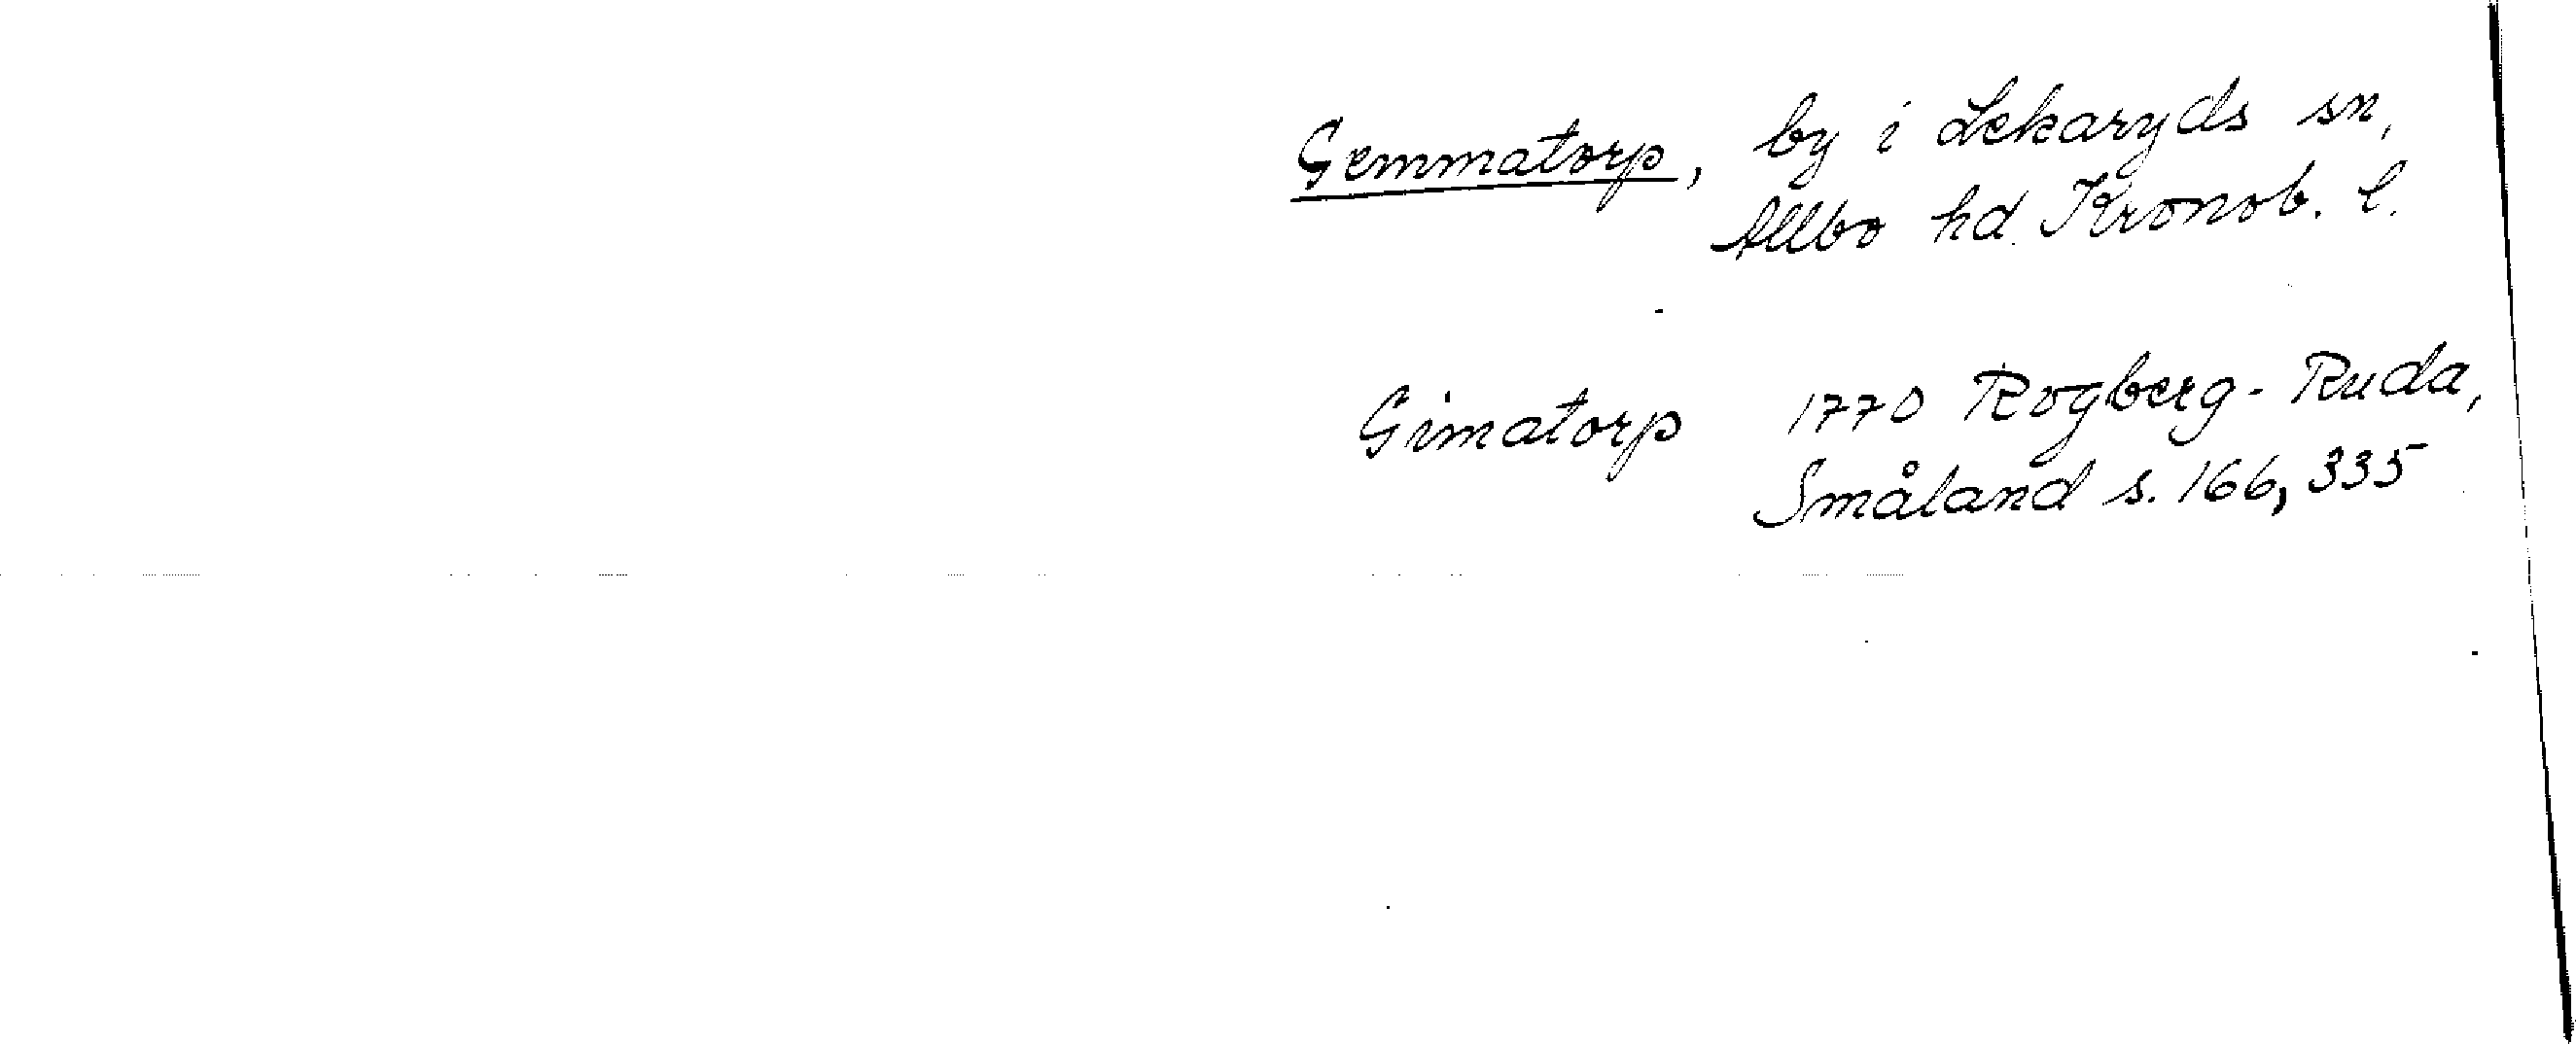 Gemmatorp, by i Lekaryds sn,
Allbo hd. Kronob. l.
Gimatorp 1770 Rogberg-Ruda,
Småland s. 166, 335